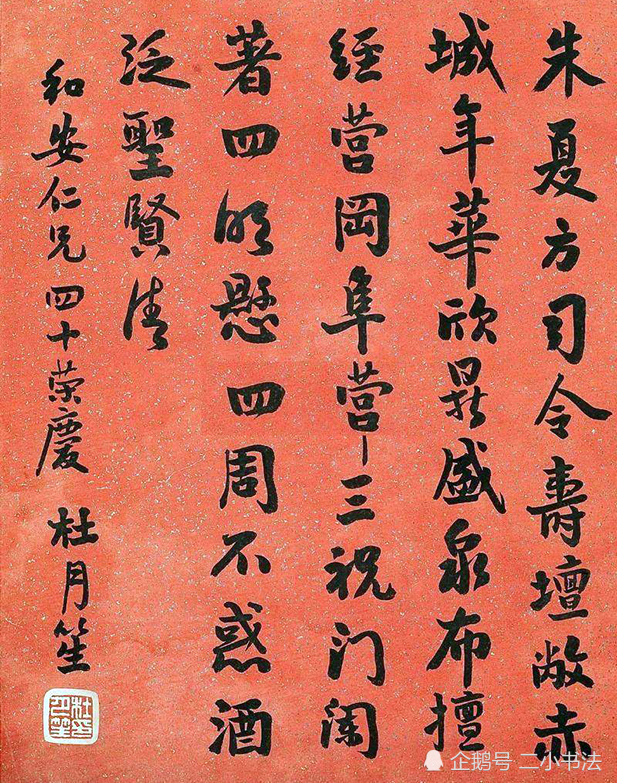 朱夏方司令壽壇敞赤
城年華欣最盛泉布擅
經营岡阜营三祝門闌
著四明懸四周不惑酒
泛聖賢清
和安仁兄四十荣慶 杜月笙
企鹅号 二小书法